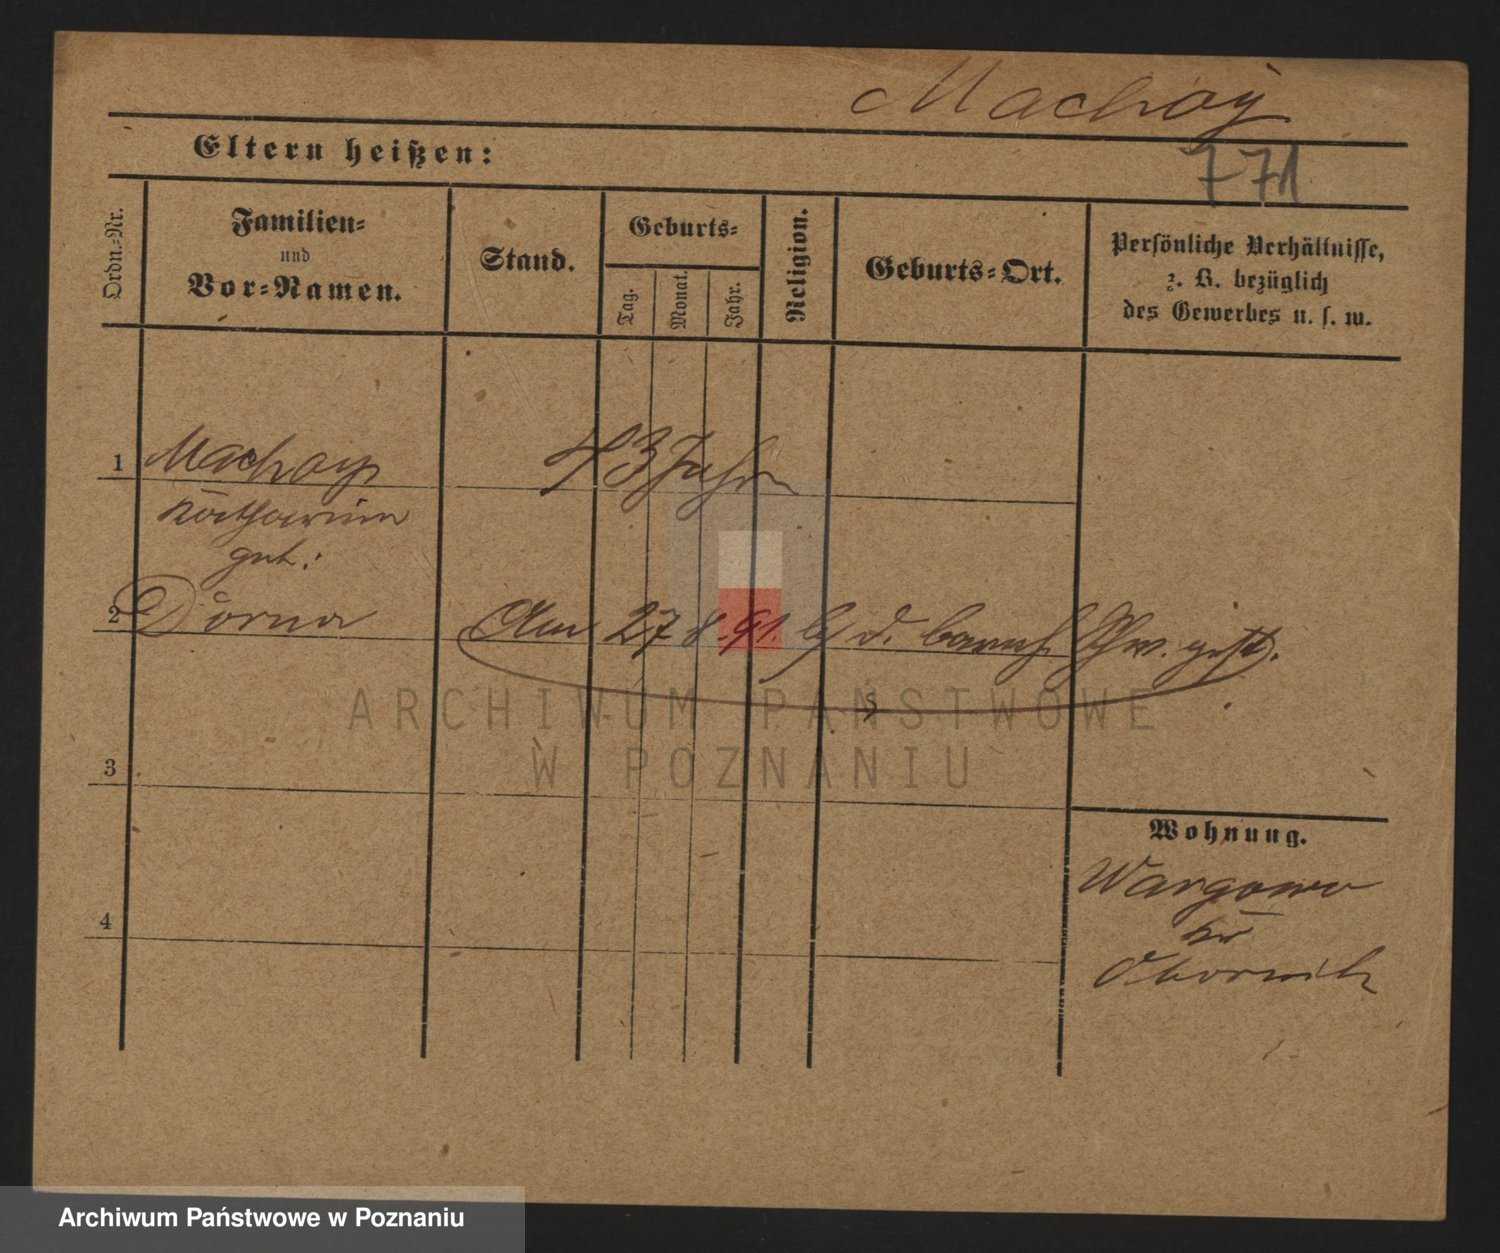 Machoy
771
Eltern heißen:
Ordn.-Nr.
Familien-
und
Vor-Namen.
Stand.
Geburts-
Tag.
Monat.
Jahr.
Religion.
Geburts-Ort.
Persönliche Verhältnisse,
z. B. bezüglich
des Gewerbes u. s. w.
1 Machoy 43 Jahre
Katharina
geb:
2 Dorna Am 27 8. 91. b/ d. barmh Schw. gest.
3
4
Wohnung.
Wargowo
Kr
Obornik
ARCHIWUM PAŃSTWOWE
W POZNANIU
Archiwum Państwowe w Poznaniu